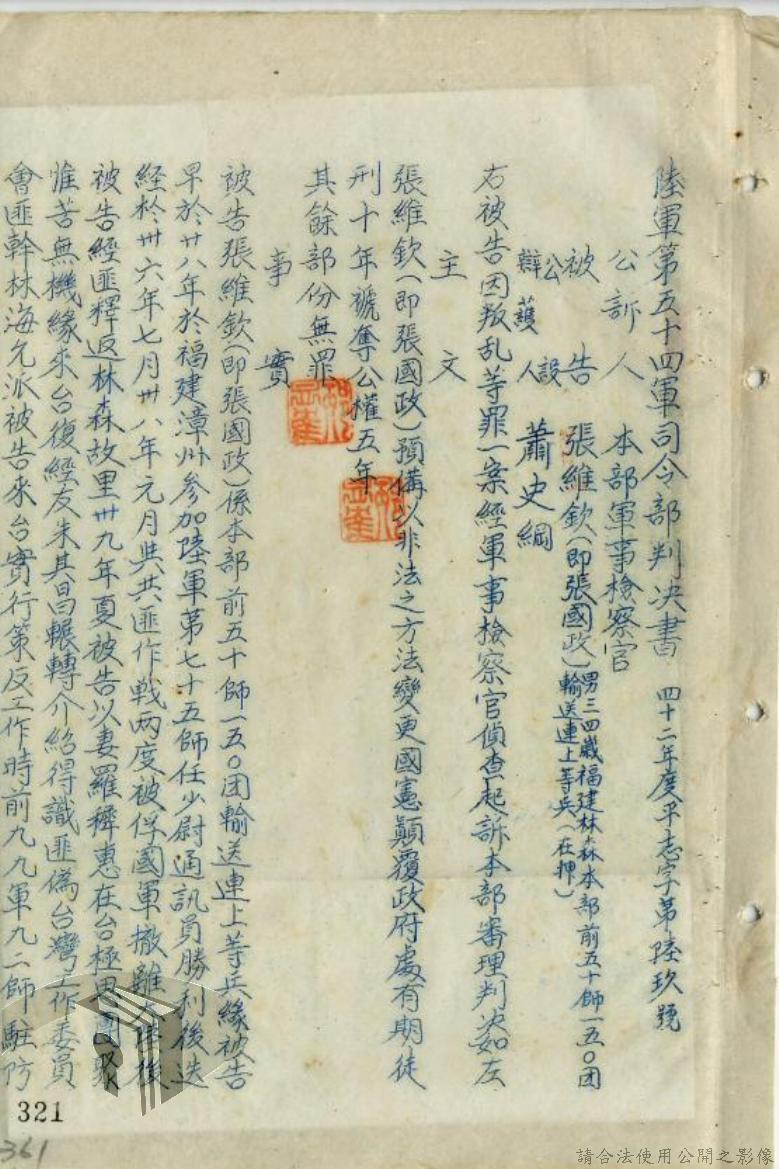 陸軍第五十四軍司令部判決書　四十二年度平志字第陸玖號
公訴人　本部軍事檢察官
被告　張維欽(即張國政)男三四歲福建林森本部前五十師一五〇团輸送連上等兵(在押)
公設辯護人　蕭史綱
右被告因叛乱等罪一案経軍事檢察官偵查起訴本部審理判決如左
主文
張維欽(即張國政)預備以非法之方法變更國憲顛覆政府處有期徒
刑十年褫奪公權五年
其餘部份無罪
事實
被告張維欽(即張國政)係本部前五十師一五〇团輸送連上等兵緣被告
早於廿八年於福建漳州參加陸軍第七十五師任少尉通訊員勝利後迭
経於卅六年七月卅八年元月與共匪作戰两度被俘國軍撤離大陸後
被告經匪釋返林森故里卅九年夏被告以妻羅穉惠在台極思團聚
惟苦無機緣來台復經友朱其昌輾轉介紹得識匪偽台灣工作委員
會匪幹林海允派被告來台實行策反工作時前九九軍九二師駐防
321
361
請合法使用公開之影像